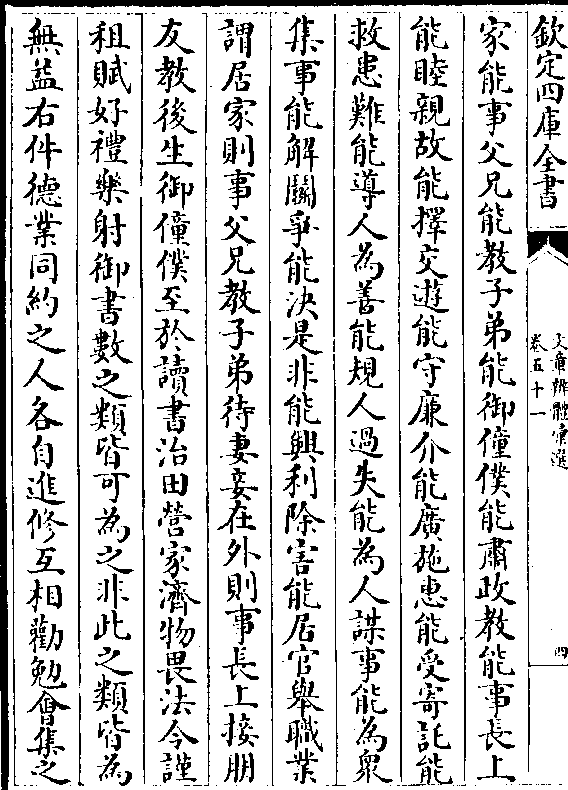 欽定四庫全書
文章辨體彙選
卷五十一
四
家能事父兄能教子弟能御僮僕能肅政教能事長上
能睦親故能擇交遊能守廉介能廣施惠能受寄託能
救患難能導人為善能規人過失能為人謀事能為衆
集事能解鬬爭能決是非能興利除害能居官舉職業
謂居家則事父兄教子弟待妻妾在外則事長上接朋
友教後生御僮僕至於讀書治田營家濟物畏法令謹
租賦好禮樂射御書數之類皆可為之非此之類皆為
無益右件德業同約之人各自進修互相勸勉會集之